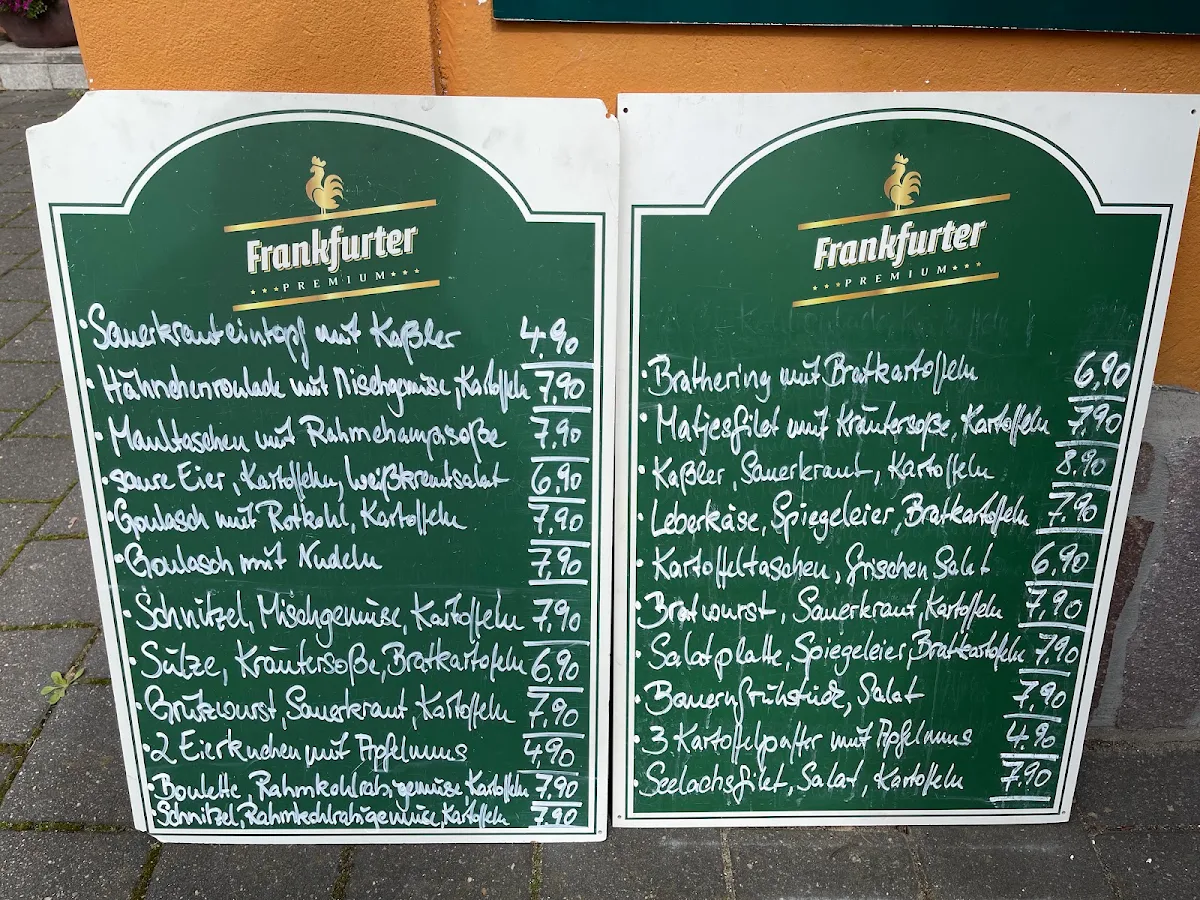 Frankfurter
PREMIUM
·Sauerkrauteintopf mit Kaßler 4,90
·Hähnchenroulade mit Mischgemüse, Kartoffeln 7,90
·Maultaschen mit Rahmchampisoße 7,90
·saure Eier, Kartoffeln, Weißkrautsalat 6,90
·Goulasch mit Rotkohl, Kartoffeln 7,90
·Goulasch mit Nudeln 7,90
·Schnitzel, Mischgemüse, Kartoffeln 7,90
·Sülze, Kräutersoße, Bratkartofeln 6,90
·Grützwurst, Sauerkraut, Kartoffeln 7,90
·2 Eierkuchen mit Apfelmus 4,90
·Boulette, Rahmkohlrabigemüse Kartoffeln 7,90
·Schnitzel, Rahmkohlrabigemüse, Kartoffeln 7,90
Frankfurter
PREMIUM
·Brathering mit Bratkartoffeln 6,90
·Matjesfilet mit Kräutersoße, Kartoffeln 7,90
·Kaßler, Sauerkraut, Kartoffeln 8,90
·Leberkäse, Spiegeleier, Bratkartoffeln 7,90
·Kartoffeltaschen, frischen Salat 6,90
·Bratwurst, Sauerkraut, Kartoffeln 7,90
·Salatplatte, Spiegeleier, Bratkartoffeln 7,90
·Bauernfrühstück, Salat 7,90
·3 Kartoffelpuffer mit Apfelmus 4,90
·Seelachsfilet, Salat, Kartoffeln 7,90